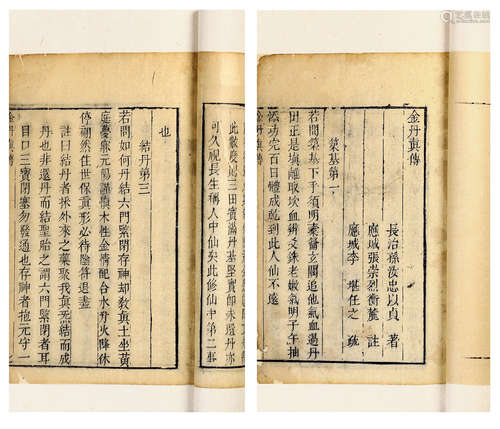 金丹真傳
長治孫汝忠以貞 著
應城張崇烈衝 註
應城李 堪任之 疏
築基第一
若問築基下手須明橐籥玄關追他氣血過丹
田正是填離取坎血辨爻銖老嫩氣明子午抽
添功完百日體成乾到此人仙不遠
金丹真傳
此數度足三田實滿丹基堅實即未還丹亦
可久視長生稱人中仙矣此修仙中第二事
也
結丹第三
若問如何丹結六門緊閉存神却教真土坐黃
庭憂慮元陽木性金情配合水升火降休
停然住世保真形必待陰符退盡
註曰結丹者採外來之藥聚我真炁結而成
丹也非還丹而結聖胎之謂六門緊閉者耳
目口三寶閉塞勿發通也存神者抱元守一
金丹真傳